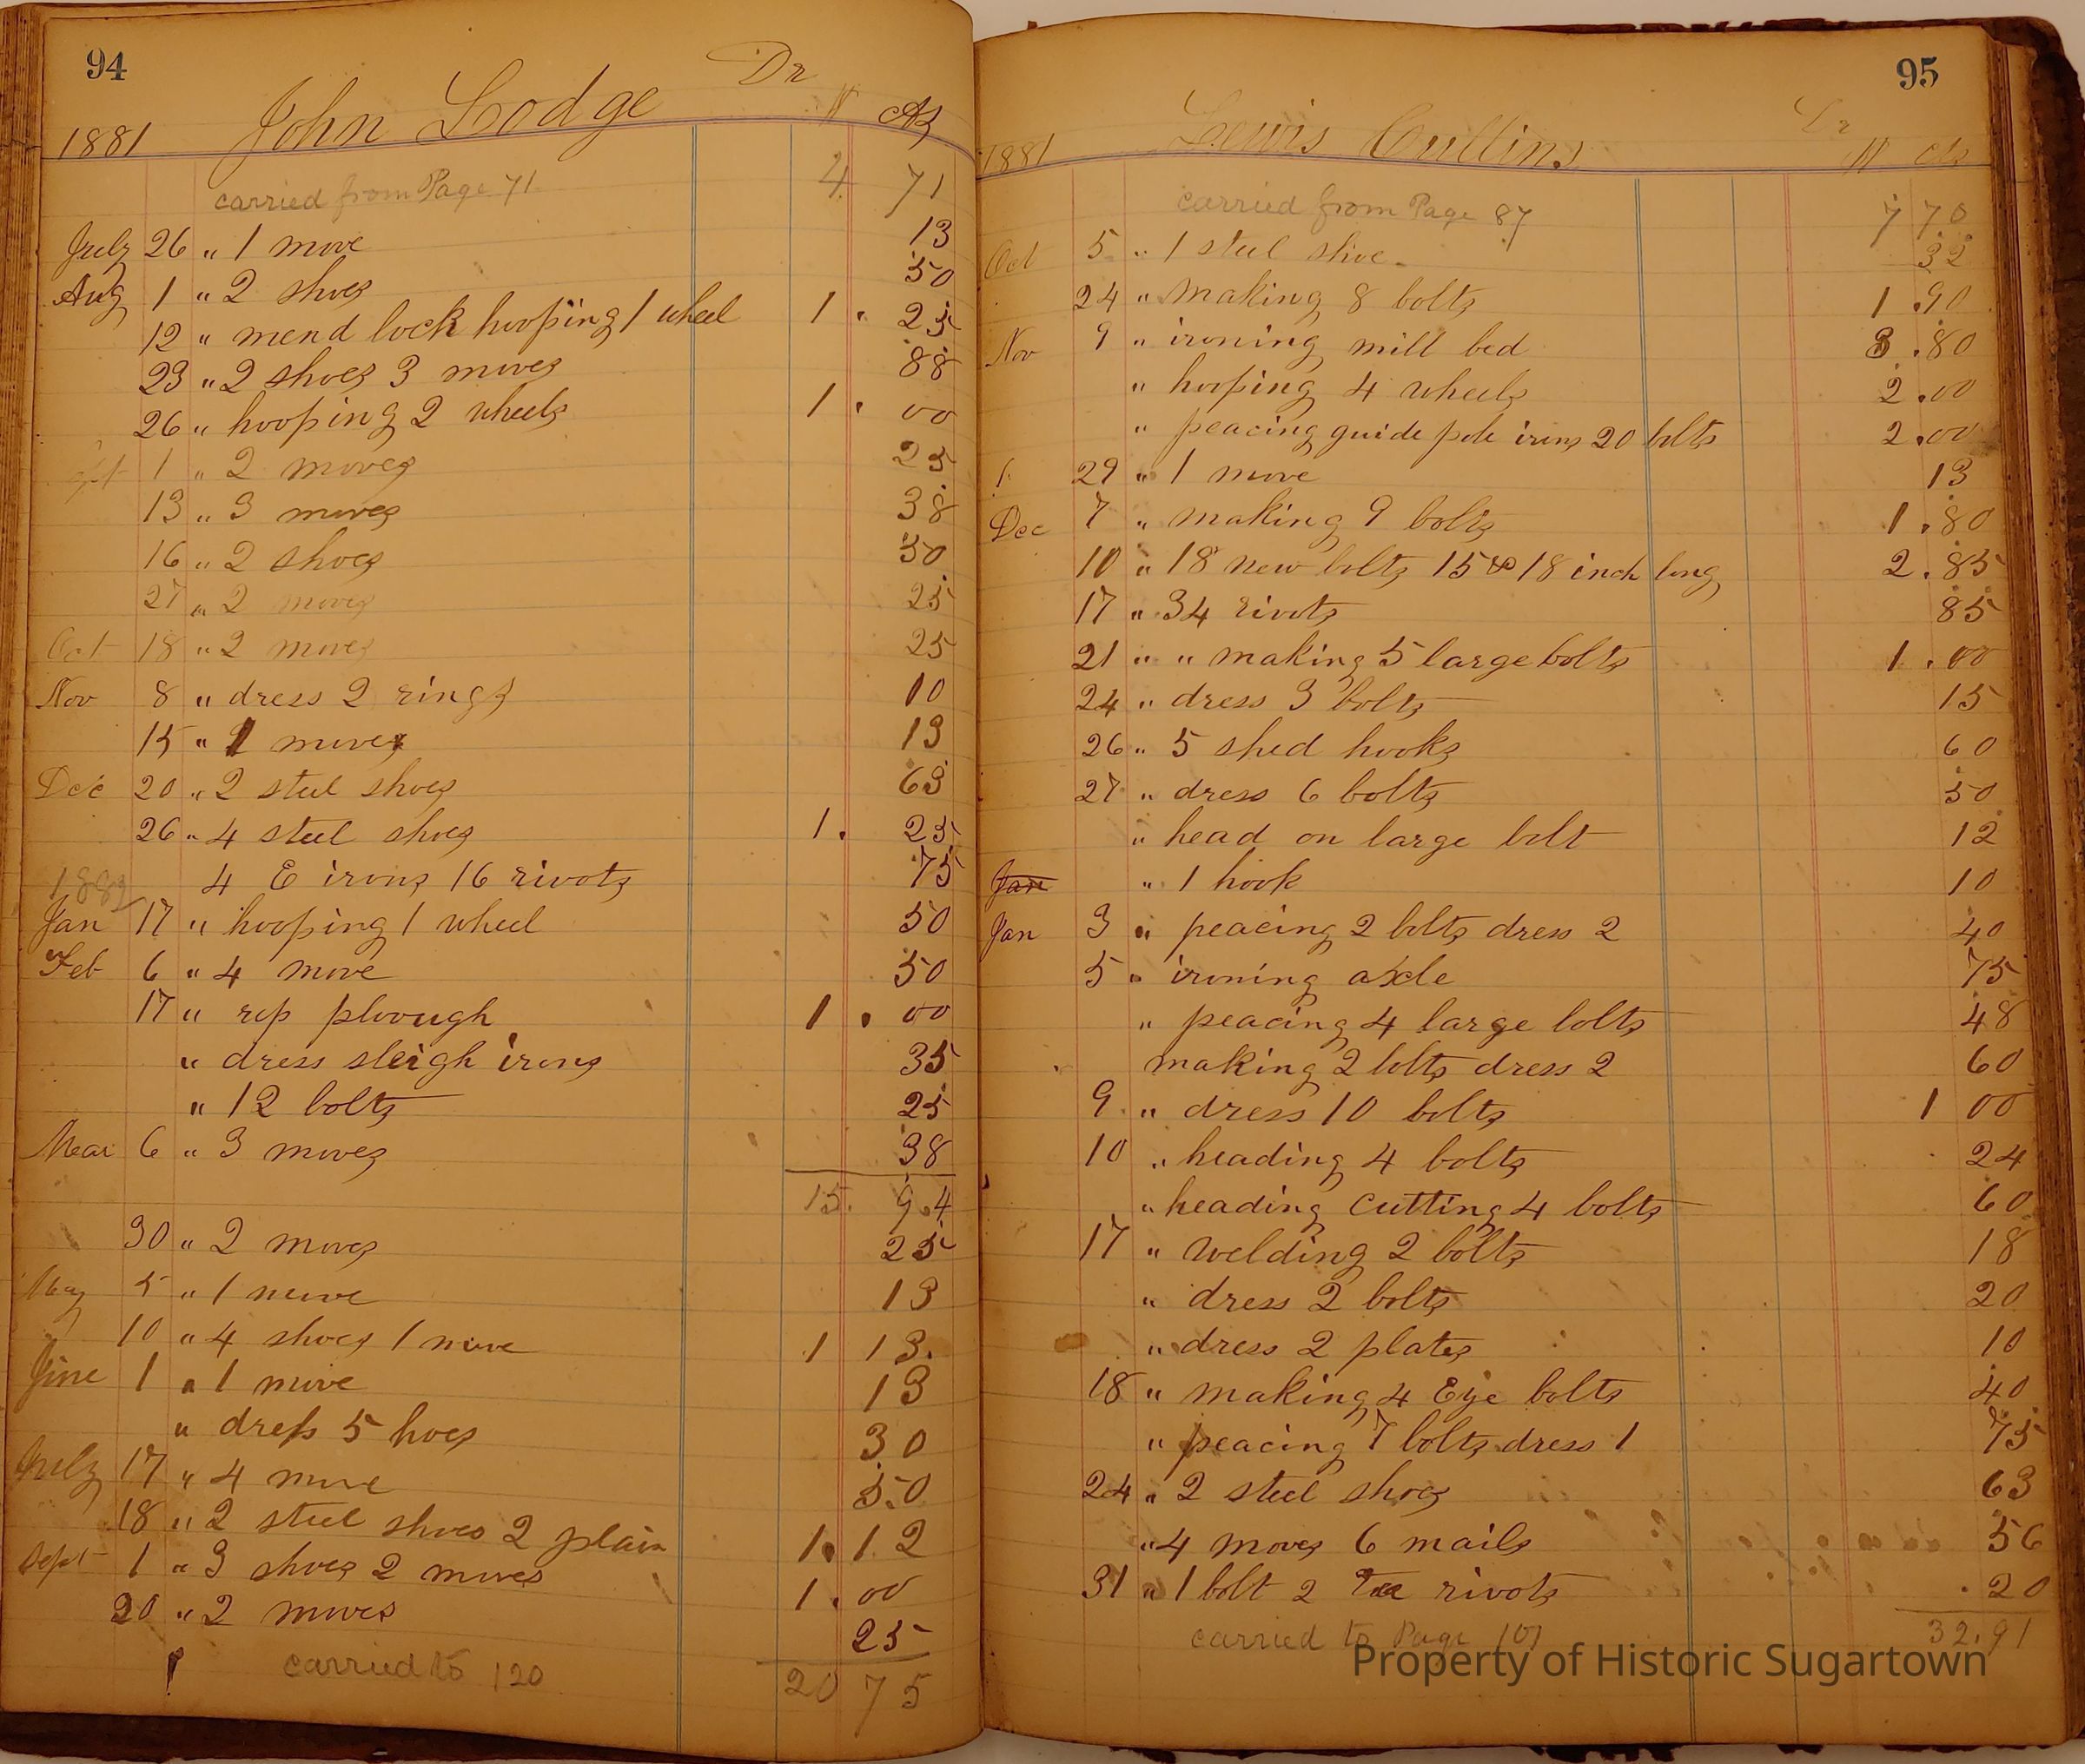 94
John Lodge Dr
1881 $ cts
carried from Page 71 4. 71
July 26 " 1 move 13
Aug 1 " 2 shoes 50
12 " mend lock hooping 1 wheel 1. 25
23 " 2 shoes 3 moves 88
26 " hooping 2 wheels 1. 00
Sept 1 " 2 moves 25
13 " 3 moves 38
16 " 2 shoes 50
27 " 2 moves 25
Oct 18 " 2 moves 25
Nov 8 " dress 2 rings 10
15 " 1 move 13
Dec 20 " 2 steel shoes 63
26 " 4 steel shoes 1. 25
4 E irons 16 rivots 75
1882
Jan 17 " hooping 1 wheel 50
Feb 6 " 4 move 50
17 " rep plough 1. 00
" dress sleigh irons 35
" 12 bolts 25
Mar 6 " 3 moves 38
15. 94
30 " 2 moves 25
May 5 " 1 move 13
10 " 4 shoes 1 move 1 13.
June 1 " 1 move 13
" dress 5 hoes 30
July 17 " 4 move 50
18 " 2 steel shoes 2 plain 1. 12
Sept 1 " 3 shoes 2 moves 1. 00
20 " 2 moves 25
carried to 120 20 75
95
Lewis Cullins Dr
1881 $ cts
carried from Page 87 7 70
Oct 5 " 1 steel shoe 32
24 " making 8 bolts 1.90
Nov 9 " ironing mill bed 3.80
" hooping 4 wheels 2.00
" peacing guide pole irons 20 bolts 2.00
29 " 1 move 13
Dec 7 " making 9 bolts 1.80
10 " 18 new bolts 15 & 18 inch long 2.85
17 " 34 rivots 85
21 " " making 5 large bolts 1.00
24 " dress 3 bolts 15
26 " 5 shed hooks 60
27 " dress 6 bolts 50
" head on large bolt 12
Jan " 1 hook 10
Jan 3 " peacing 2 bolts dress 2 40
5 " ironing axle 75
" peacing 4 large bolts 48
making 2 bolts dress 2 60
9 " dress 10 bolts 1 00
10 " heading 4 bolts 24
" heading cutting 4 bolts 60
17 " welding 2 bolts 18
" dress 2 bolts 20
" dress 2 plates 10
18 " making 4 Eye bolts 40
" peacing 7 bolts dress 1 75
24 " 2 steel shoes 63
" 4 moves 6 mails 56
31 " 1 bolt 2 rivots .20
carried to Page 101 32.91
Property of Historic Sugartown